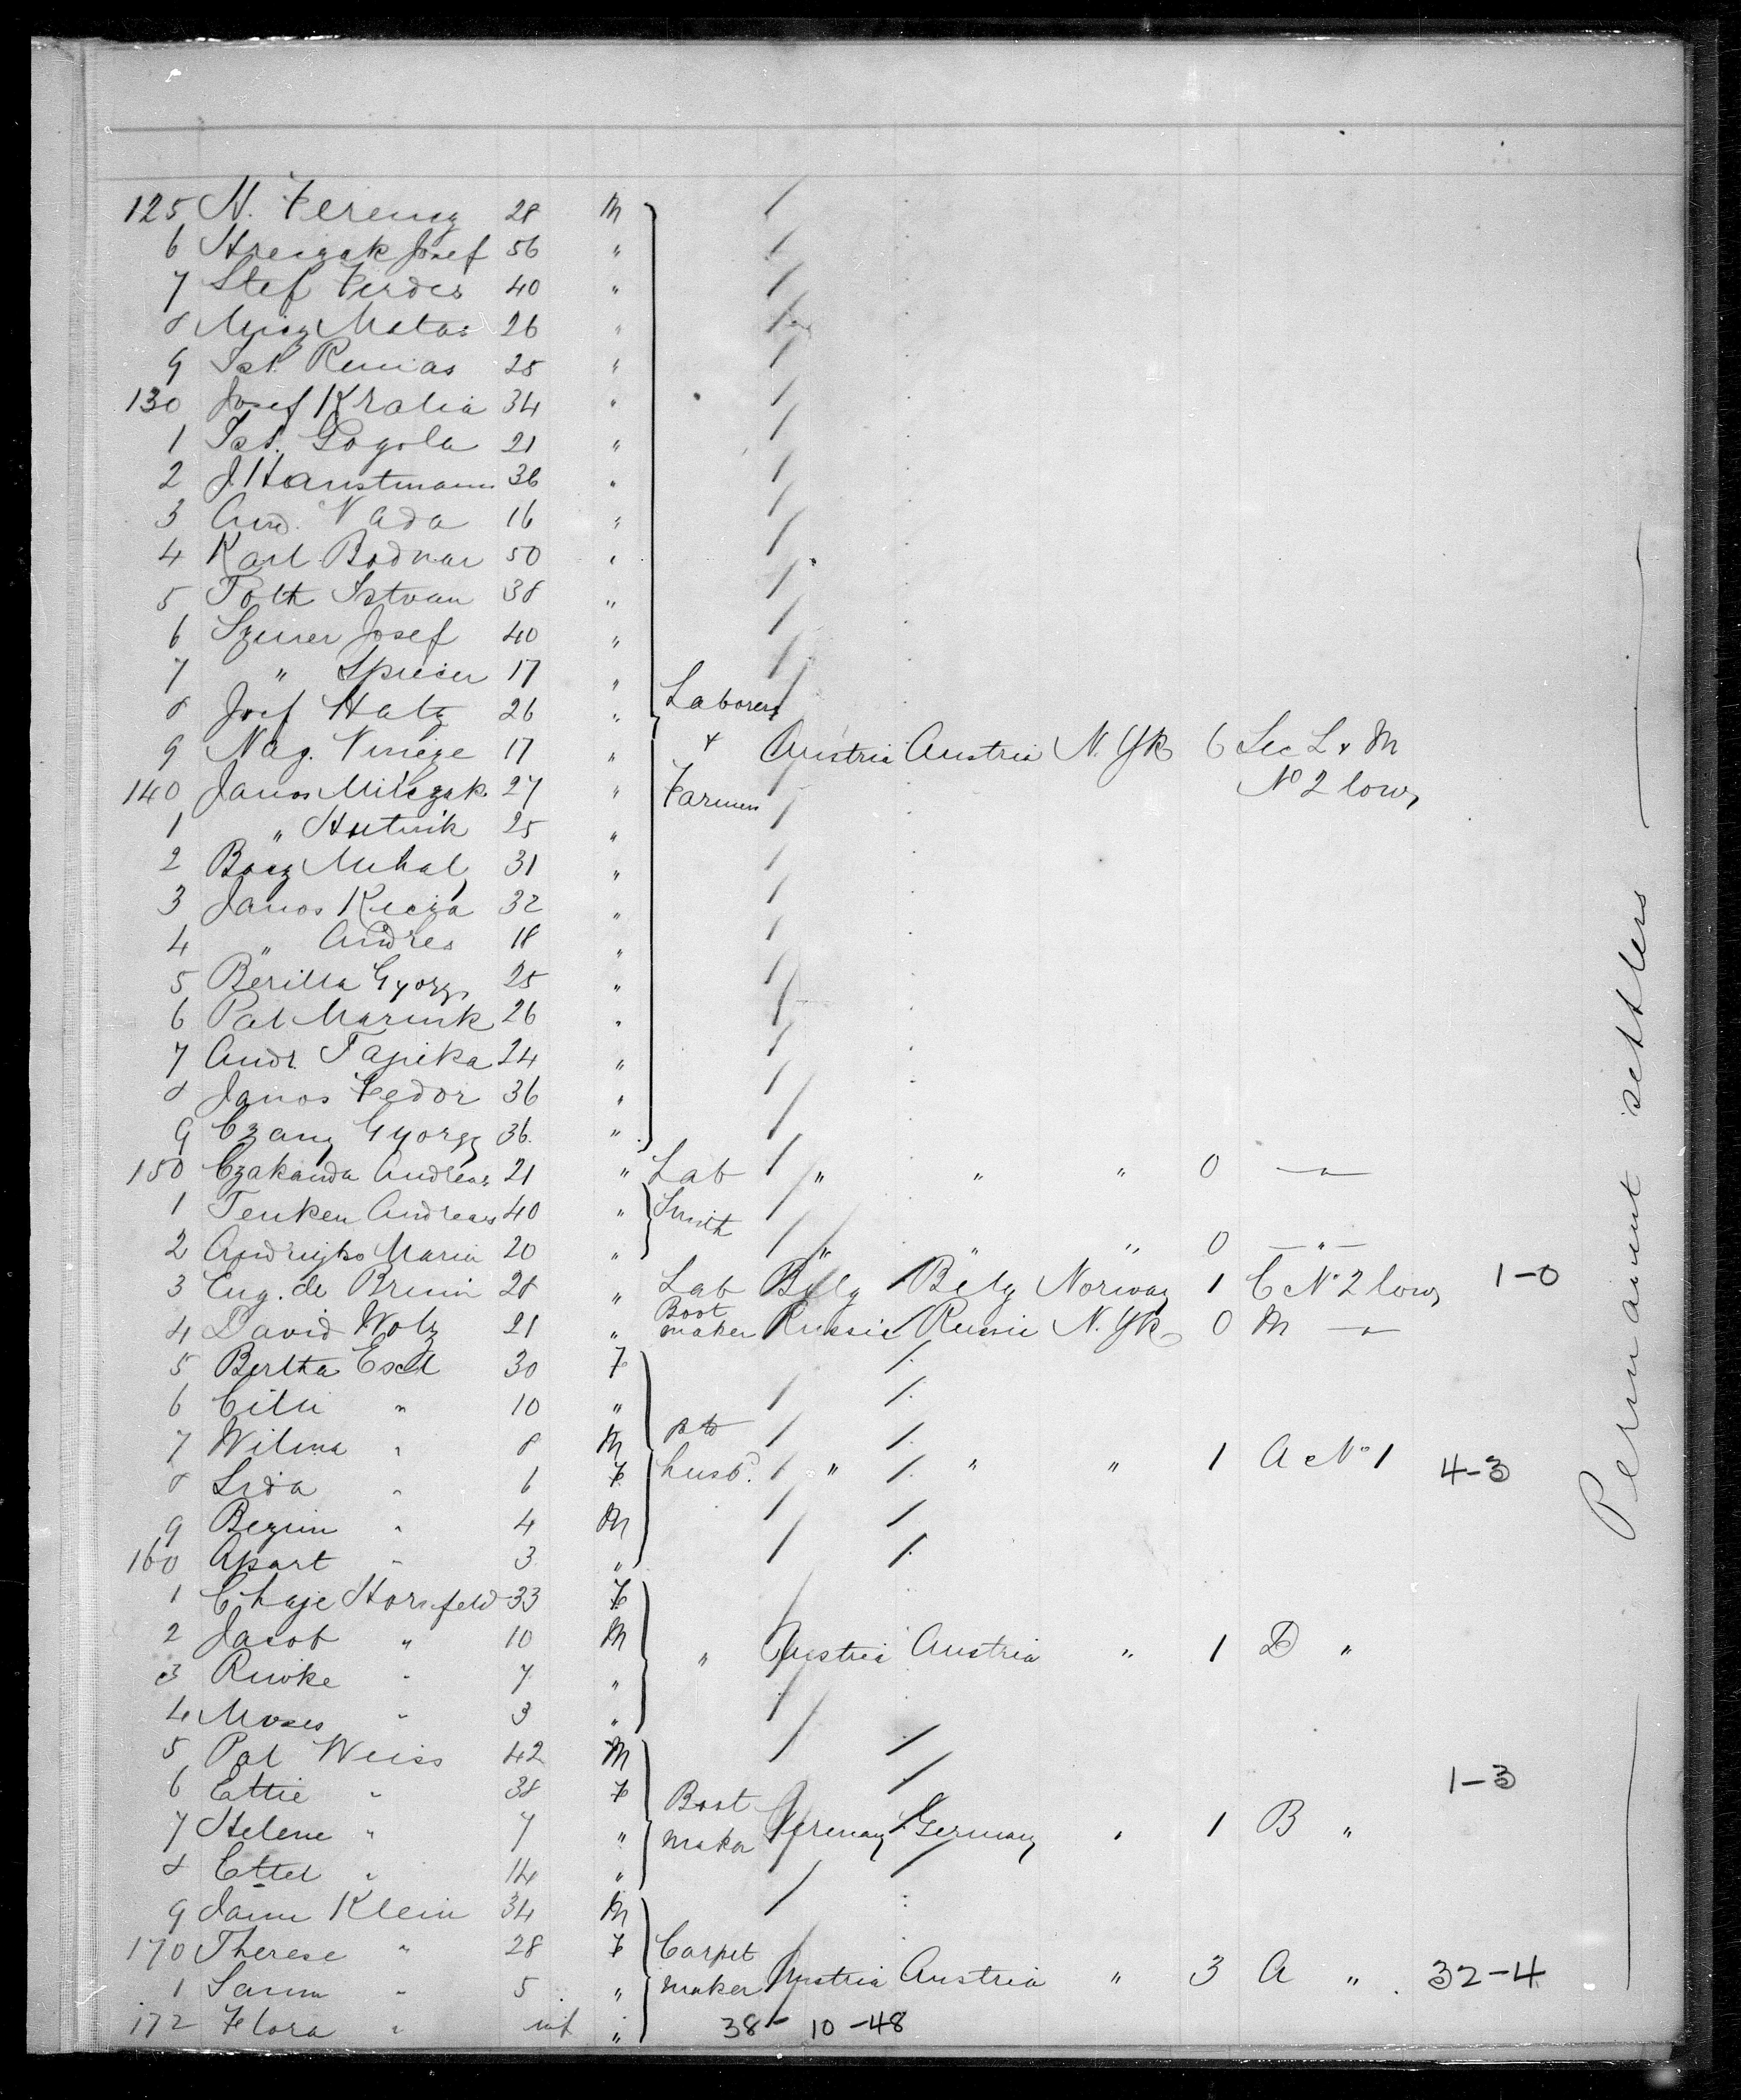 125 N. Ferency 28 M
6 Hreizak Josef 56 "
7 Stef Ferdes 40 "
8 Misz Matas 26 "
9 Ist. Remias 25 "
130 Josef Kralia 34 "
1 Ist. Gogola 21 "
2 J. Hanstmann 36 "
3 And. Vada 16 "
4 Karl Bodnar 50 "
5 Toth Istvan 38 "
6 Szurer Josef 40 "
7 " Spreser 17 "
8 Josf Hatz 26 " Laborers
9 Nag. Vincze 17 " + Austria Austria N. Yk 6 Sec L & M
140 Janos Milczak 27 " Farmers No 2 low,
1 " Hutnik 25 "
2 Bacz Mihal 31 "
3 Janos Kecza 32 "
4 " Andres 18 "
5 Berilla Gyorgy 25 "
6 Pal Marink 26 "
7 Andr. Tapika 24 "
8 Janos Fedor 36 "
9 Czany Gyorgy 36 "
150 Czakanda Andreas 21 " Lab " " " 0 "
1 Tenken Andreas 40 " Smith
2 Andrijko Maria 20 " " " " 0 "
3 Eug. de Bruin 28 " Lab Belg Belg Norway 1 C No 2 low, 1-0
4 David Wolz 21 " Boot maker Russia Russia N. Yk 0 M "
5 Bertha Exel 30 F
6 Cilli " 10 "
7 Wilma " 8 M to
8 Lida " 6 F husb. " " " 1 A No 1 4-3
9 Bezim " 4 M
160 Apart " 3 "
1 Chaje Hornfeld 33 F
2 Jacob " 10 M " Austria Austria " 1 D "
3 Riwke " 7 "
4 Moses " 3 "
5 Pal Weiss 42 M
6 Ettie " 38 F Boot 1-3
7 Helene " 7 " maker Germany Germany " 1 B "
8 Ettel " 14 "
9 Janu Klein 34 M
170 Therese " 28 F Carpet
1 Sanna " 5 " maker Austria Austria " 3 A " 32-4
172 Flora " inf " 38-10-48
Permanent settlers